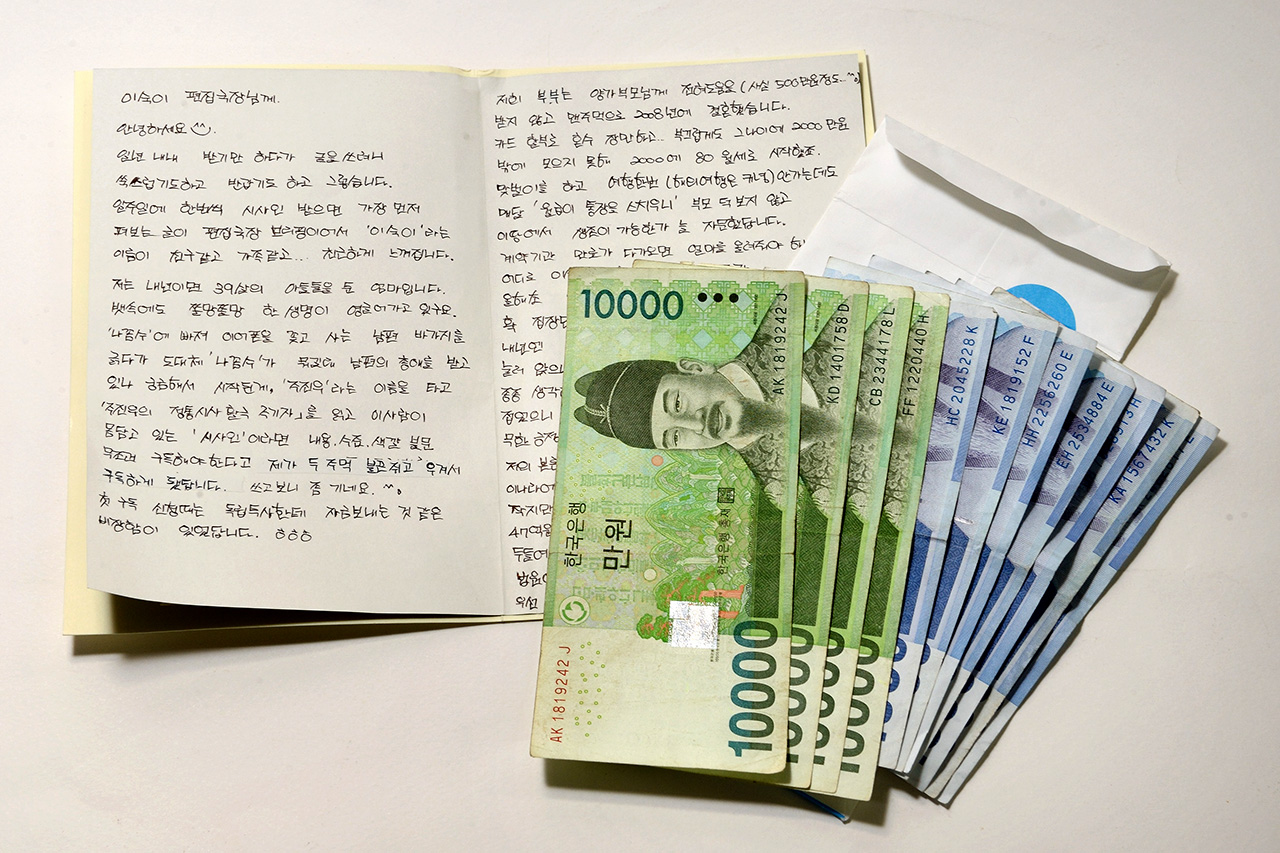 이숙이 편집국장님께.
안녕하세요
일년 내내 받기만 하다가 글을 쓰려니
쑥스럽기도하고 반갑기도 하고 그렇습니다.
일주일에 한번씩 시사인 받으면 가장 먼저
펴보는 글이 편집국장 브리핑이어서 '이숙이'라는
이름이 친구같고 가족같고... 친근하게 느껴집니다.
저는 내년이면 39살의 아들둘을 둔 엄마입니다.
뱃속에도 쫄망쫄망 한 생명이 영글어가고 있구요.
'나꼼수'에 빠져 이어폰을 꽂고 사는 남편 바가지를
긁다가 도대체 '나꼼수'가 뭐길래 남편의 총애를 받고
있나 궁금해서 시작된게, '주진우'라는 이름을 타고
「주진우의 정통시사 활극 주기자」를 읽고 이사람이
몸담고 있는 '시사인'이라면 내용.수준.색깔 불문
무조건 구독해야한다고 제가 두 주먹 불끈쥐고 우겨서
구독하게 됐답니다. 쓰고보니 좀 기네요. ^^;
첫 구독 신청때는 독립투사한테 자금보내는 것 같은
비장함이 있었답니다. ㅎㅎㅎ
저희 부부는 양가부모님께 전혀도움을 (사실 500만원정도...^^;)
받지 않고 맨주먹으로 2008년에 결혼했습니다.
카드 할부로 혼수 장만하고... 부끄럽게도 그나이에 2000만원
밖에 모으지 못해 2000에 80 월세로 시작했죠.
맞벌이를 하고 여행한번 (해외여행은 커녕) 안가는데도
매달 '월급이 통장을 스치우니' 부모 덕 보지 않고
이땅에서 생존이 가능한가 늘 자문했답니다.
계약기간 만료가 다가오면 얼마를 올려주야
어디로
올해초
확 집장만
내년엔
눌러 앉으
종종 생각
집있으니
무한 긍정
저의 본론
이나라에
작지만
47억원
두들여
법원이
우선
10000
AK 1819242 J
한국은행
만원
한국은행 총재
AK 1819242 J
10000
KD 1401758 D
CB 2344178 L
FF 1220440 H
10000
HC 2045228 K
KE 1819152 F
HH 2256260 E
EH 2534884 E
KA 1567432 K